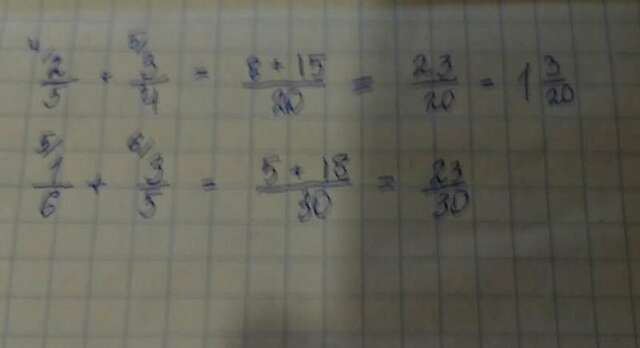 4/ 2/5 + 5/ 3/4 = 8 + 15/20 = 23/20 = 1 3/20
5/ 1/6 + 6/ 3/5 = 5 + 18/30 = 23/30